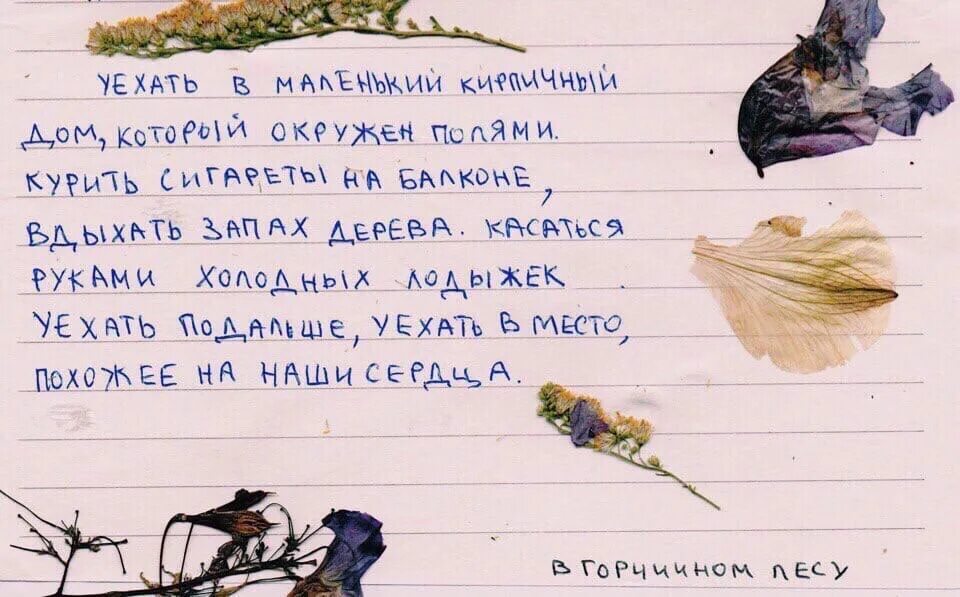 УЕХАТЬ В МАЛЕНЬКИЙ КИРПИЧНЫЙ
ДОМ, КОТОРЫЙ ОКРУЖЕН ПОЛЯМИ.
КУРИТЬ СИГАРЕТЫ НА БАЛКОНЕ,
ВДЫХАТЬ ЗАПАХ ДЕРЕВА. КАСАТЬСЯ
РУКАМИ ХОЛОДНЫХ ЛОДЫЖЕК.
УЕХАТЬ ПОДАЛЬШЕ, УЕХАТЬ В МЕСТО,
ПОХОЖЕЕ НА НАШИ СЕРДЦА.
В ГОРЧИЧНОМ ЛЕСУ